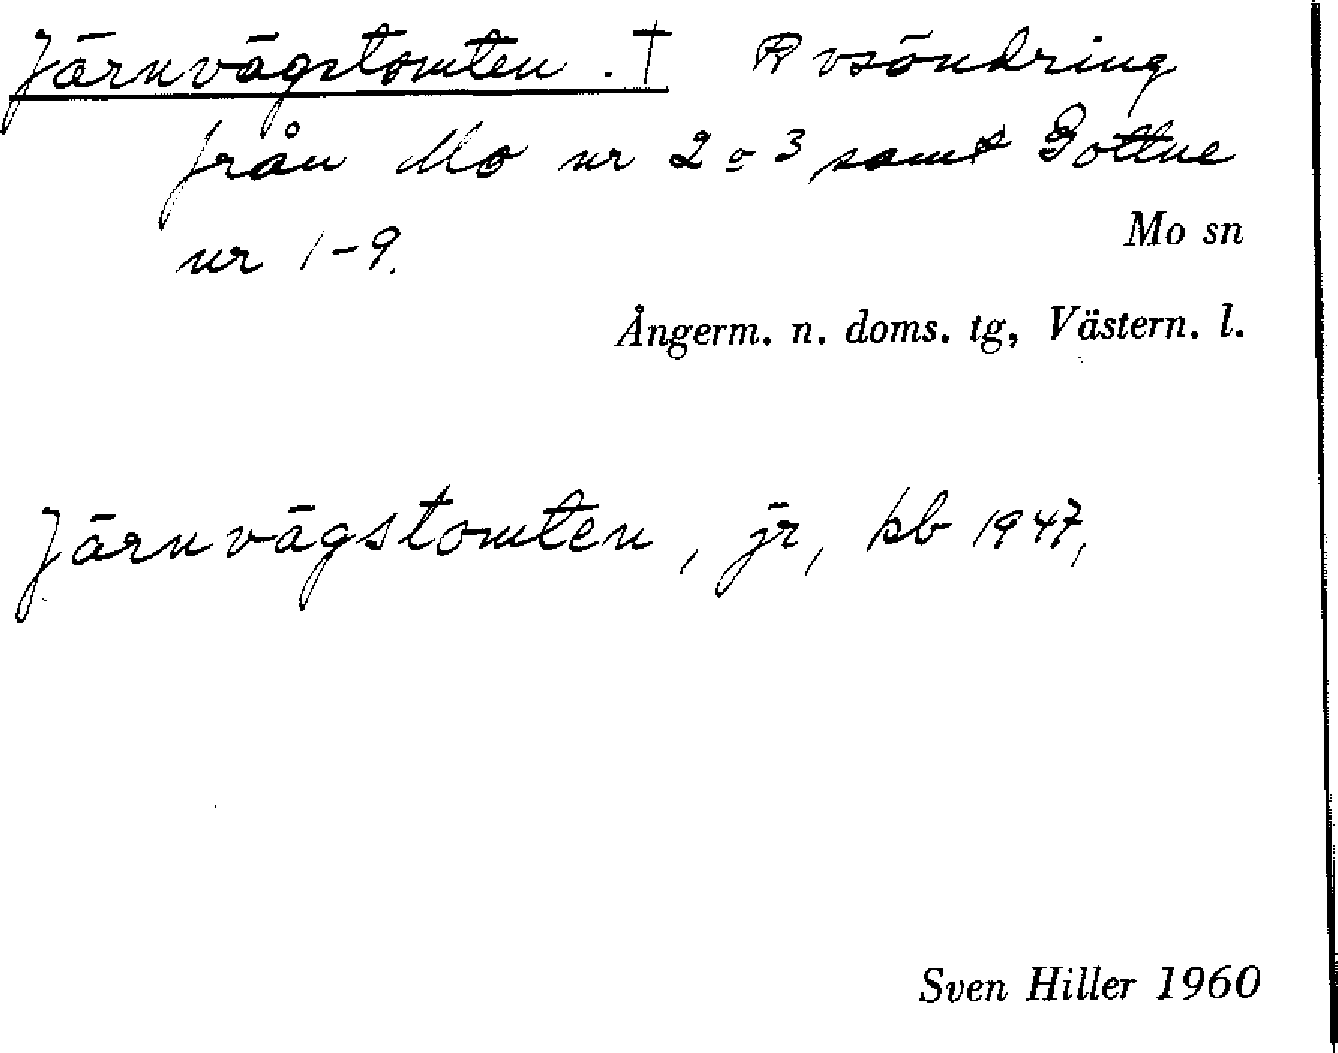 Järnvägstomten. † Avsöndring
från Mo nr 2 o 3 samt Gottne
nr 1-9.
Mo sn
Ångerm. n. doms. tg, Västern. l.
Järnvägstomten, jr, kb 1947,
Sven Hiller 1960